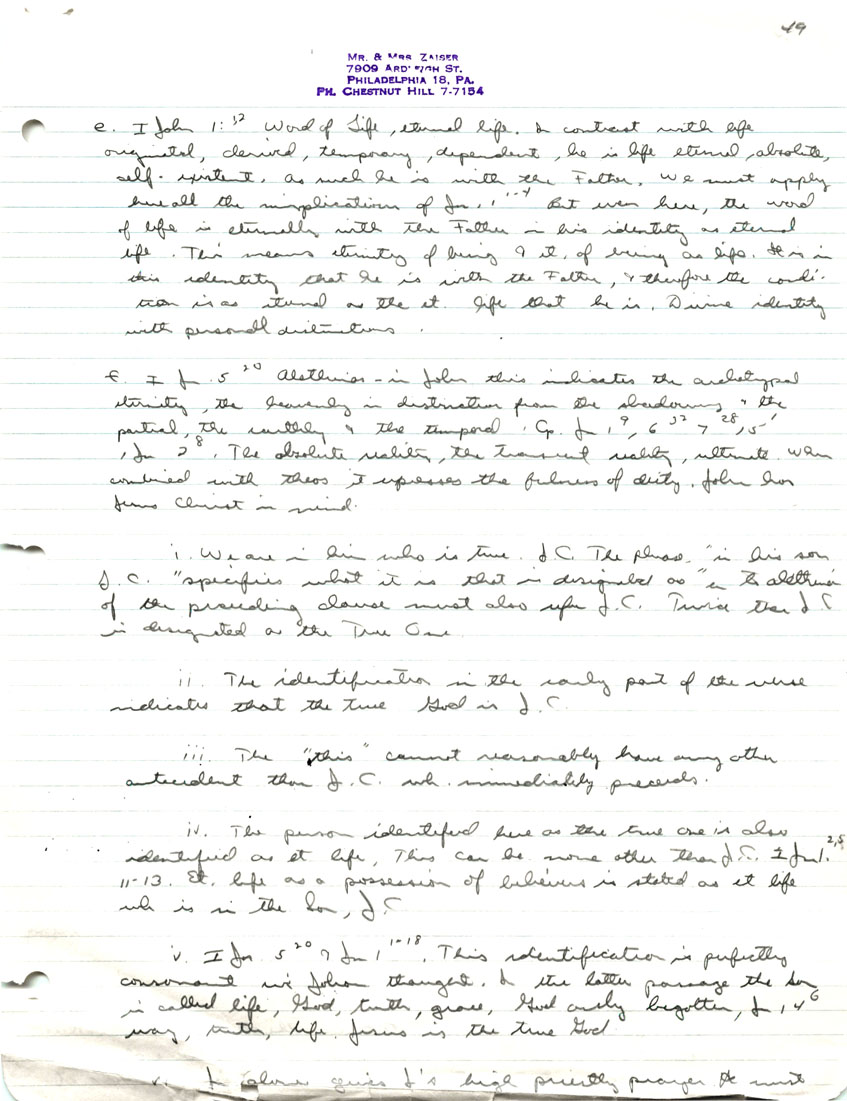 49
MR. & MRS ZAISER
7909 ARDLEIGH ST.
PHILADELPHIA 18, PA.
PH. CHESTNUT HILL 7-7154
e. I John 1:1,2 Word of Life, eternal life. In contrast with life
originated, derived, temporary, dependent, he is life eternal, absolute,
self-existent. As such he is with the Father. We must apply
here all the implications of Jn. 1 1-4 But even here, the word
of life is eternally with the Father in his identity as eternal
life. This means eternity of being & et. of being as life. It is in
this identity that he is with the Father, & therefore the condi-
tion is as eternal as the et. life that he is. Divine identity
with personal distinctions.
f. I Jn. 5 20 Alethinos - in John this indicates the archetypal
eternity, the heavenly in distinction from the shadowy & the
partial, the earthly & the temporal. Cp. Jn 1 9, 6 32 7 28, 15 1
I Jn 2 8. The absolute reality, the reality, ultimate. When
combined with theos it expresses the fulness of deity. John has
Jesus Christ in mind.
i. We are in him who is true. J.C. The phrase, "in his son
J.C." specifies what it is that is designated as "en to alethino
of the preceding clause must also refer J.C. Twice then J.C
is designated as the True One
ii. The identification in the early part of the verse
indicates that the true God is J.C.
iii. The "this" cannot reasonably have any other
antecedent than J.C. wh. immediately precedes.
iv. The person identified here as the true one is also
identified as et life, This can be none other than J.C. I Jn 1. 2, 5
11-13. Et. life as a possession of believers is stated as et life
wh is in the Son, J.C
v. I Jn 5 20 & Jn 1 1-18. This identification is perfectly
consonant wi Johan thought. In the latter passage the Son
is called life, God, truth, grace, God only begotten, Jn 14 6
way, truth, life. Jesus is the true God
v. J alone gives J's high priestly prayer He must